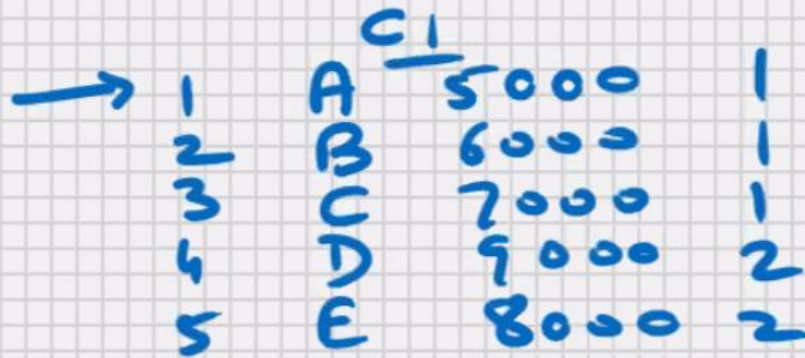 C1
→ 1 A 5000 1
2 B 6000 1
3 C 7000 1
4 D 9000 2
5 E 8000 2